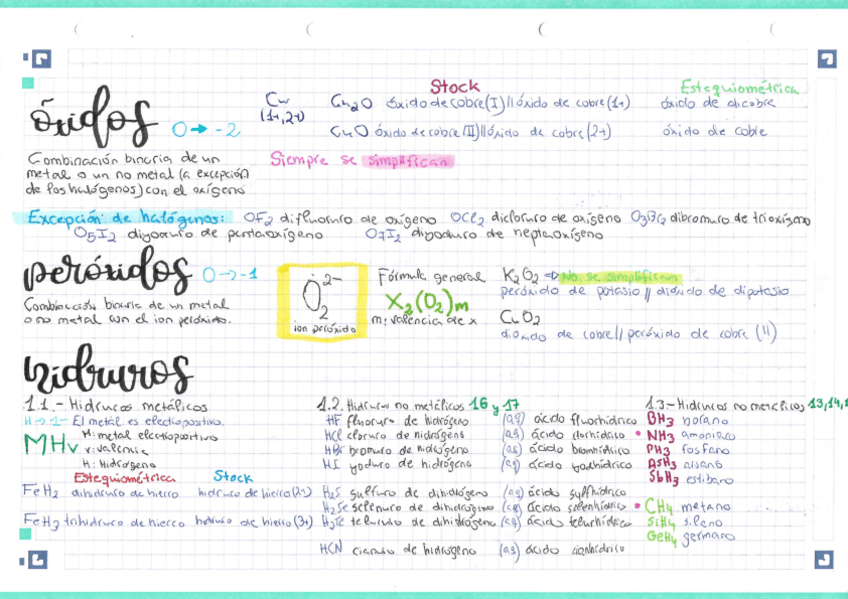 Stock
Estequiométrica
óxidos O → -2
Cu
(1+,2+)
Cu2O óxido de cobre(I)||óxido de cobre(1+) óxido de dicobre
CuO óxido de cobre(II)||óxido de cobre(2+) óxido de cobre
Combinación binaria de un
metal o un no metal (a excepción
de los halógenos) con el oxígeno
Siempre se simplifican
Excepción de halógenos: OF2 difluoruro de oxígeno OCl2 dicloruro de oxígeno O3Br2 dibromuro de trioxígeno
O5I2 diyoduro de pentaoxígeno O7I2 diyoduro de heptaoxígeno
peróxidos O → -1
Combinación binaria de un metal
o no metal con el ion peróxido.
O2 2-
ion peróxido
Fórmula general
X2(O2)m
m: valencia de x
K2O2 ⇒ No se simplifican
peróxido de potasio || dióxido de dipotasio
CuO2
dióxido de cobre || peróxido de cobre (II)
hidruros
1.1.- Hidruros metálicos
H → 1- El metal es electropositivo.
MHv
M: metal electropositivo
v: valencia
H: Hidrógeno
Estequiométrica Stock
FeH2 dihidruro de hierro hidruro de hierro(2+)
FeH3 trihidruro de hierro hidruro de hierro (3+)
1.2. Hidruros no metálicos 16 y 17
HF fluoruro de hidrógeno (aq) ácido fluorhídrico
HCl cloruro de hidrógeno (aq) ácido clorhídrico
HBr bromuro de hidrógeno (aq) ácido bromhídrico
HI yoduro de hidrógeno (aq) ácido yodhídrico
H2S sulfuro de dihidrógeno (aq) ácido sulfhídrico
H2Se selenuro de dihidrógeno (aq) ácido selenhídrico
H2Te telururo de dihidrógeno (aq) ácido telurhídrico
HCN cianuro de hidrógeno (aq) ácido cianhídrico
1.3.- Hidruros no metálicos 13,14,1
BH3 borano
• NH3 amoniaco
PH3 fosfano
AsH3 arsano
SbH3 estibano
• CH4 metano
SiH4 silano
GeH4 germano